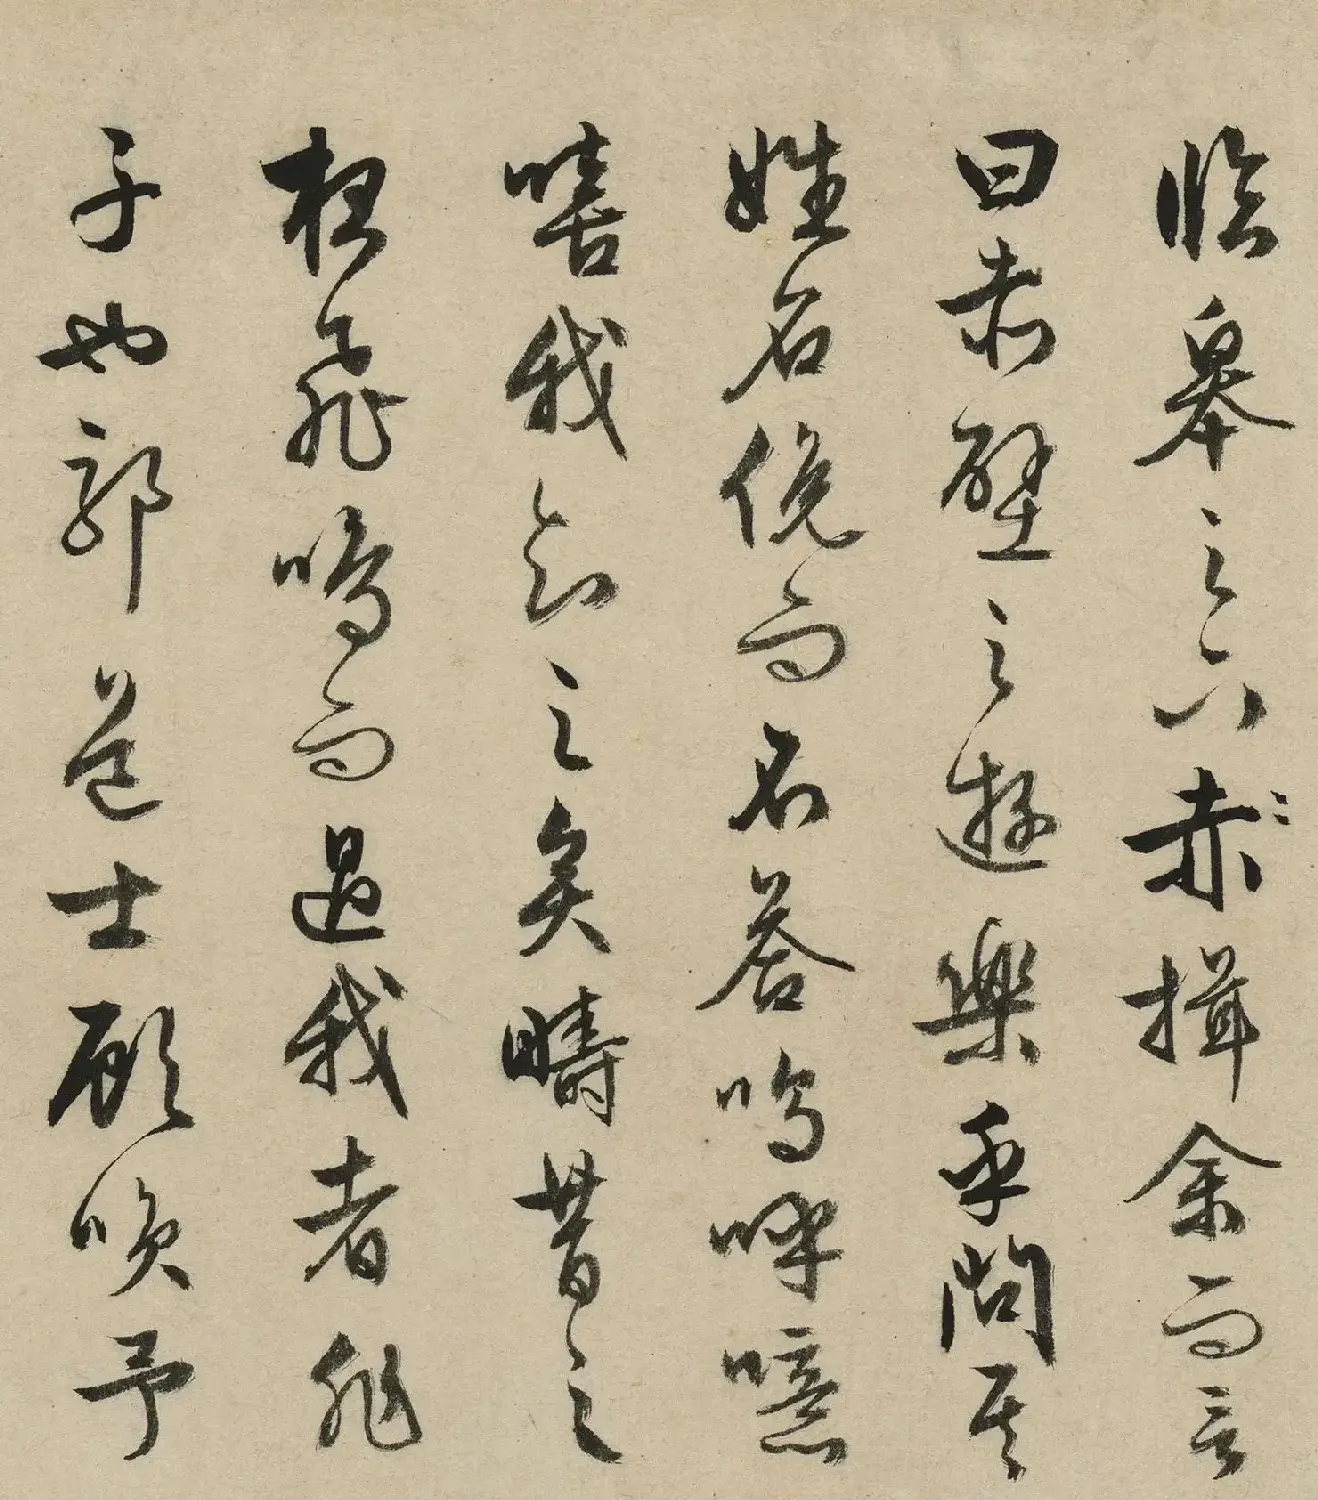 臨皋之下赤揖余而言
曰赤壁之遊樂乎問其
姓名俛而不答嗚呼噫
嘻我知之矣疇昔之
夜飛鳴而過我者非
子也耶道士顧咲予